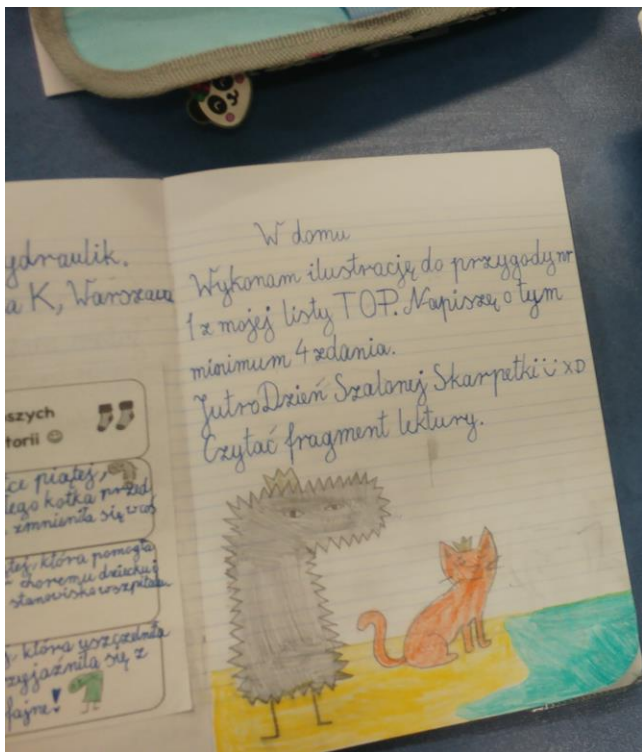 ydraulik.
a K, Warszawa
szych
torii ☺
ce piątej,
ego kotka przed
zmieniła się w os
tej, która pomogła
choremu dziecku
stanowisko w szpitalu
która uszczedniła
zyjaźniła się z
fajne!
W domu
Wykonam ilustrację do przygody nr
1 z mojej listy TOP. Napiszę o tym
minimum 4 zdania.
Jutro Dzień Szalonej Skarpetki ☺ XD
Czytać fragment lektury.